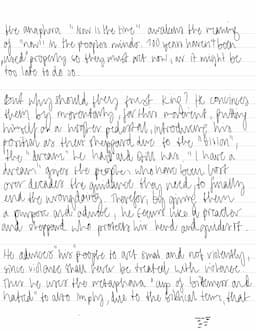 the anaphora "Now is the time" awakens the meaning
of "now" in the peoples minds. 100 years haven't been
used properly so they must act now, or it might be
too late to do so.
But why should they trust King? He convinces
them by momentarily, for this movement, putting
himself on a higher pedestal, introducing his
position as their sheppard due to the "vision",
the "dream" he had and still has. "I have a
dream" gives the people who have been lost
over decades the guidance they need to finally
end the wrongdoing. Therefor, by giving them
a purpose and advise, he seems like a preacher
and sheppard who protects his herd and guides it.
He advices his people to act small and not violently,
since violence shall never be treated with violence.
Thus he uses the metaphora "cup of bitterness and
hatred" to also imply, due to the biblical term, that